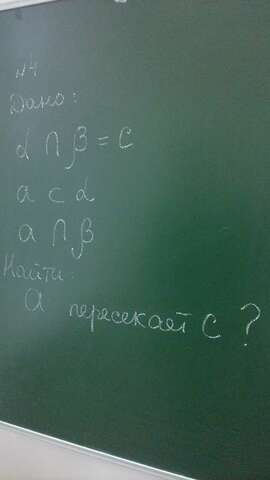 №4
Дано:
α ∩ β = c
a ⊂ α
a ∩ β
Найти:
a пересекает c ?